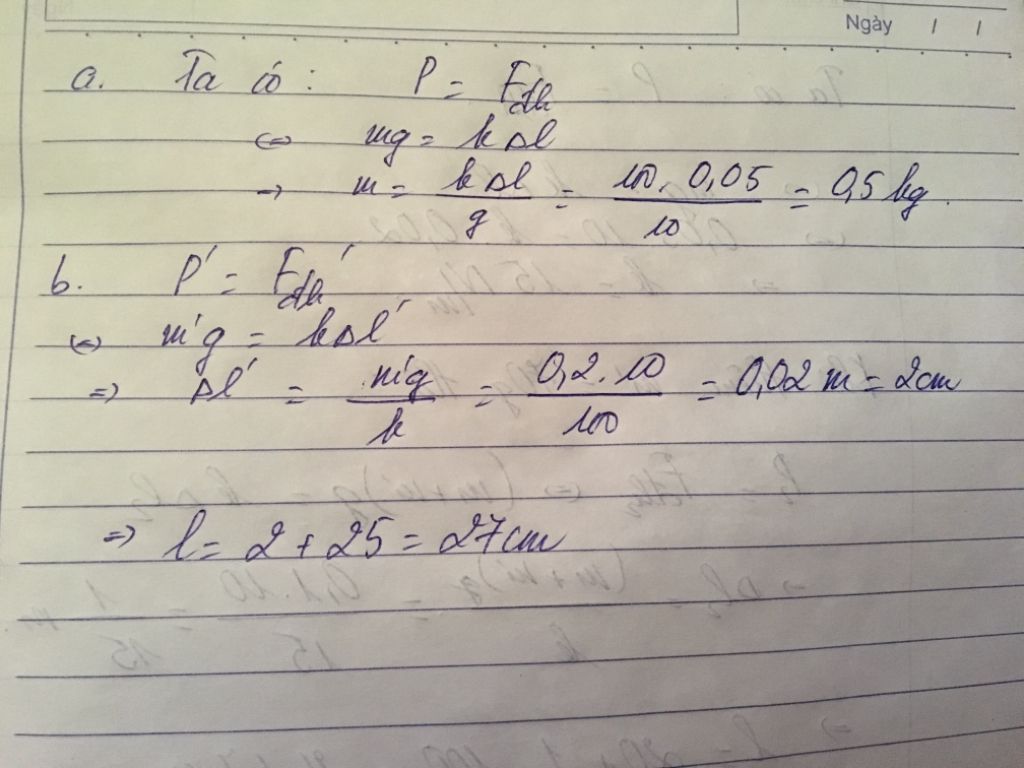 Ngày / /
a. Ta có : P = Fđh
<=> mg = kΔl
-> m = kΔl/g = 100. 0,05/10 = 0,5 kg.
b. P' = Fđh'
<=> m'g = kΔl'
=> Δl' = m'g/k = 0,2.10/100 = 0,02 m = 2cm
=> l = 2 + 25 = 27cm